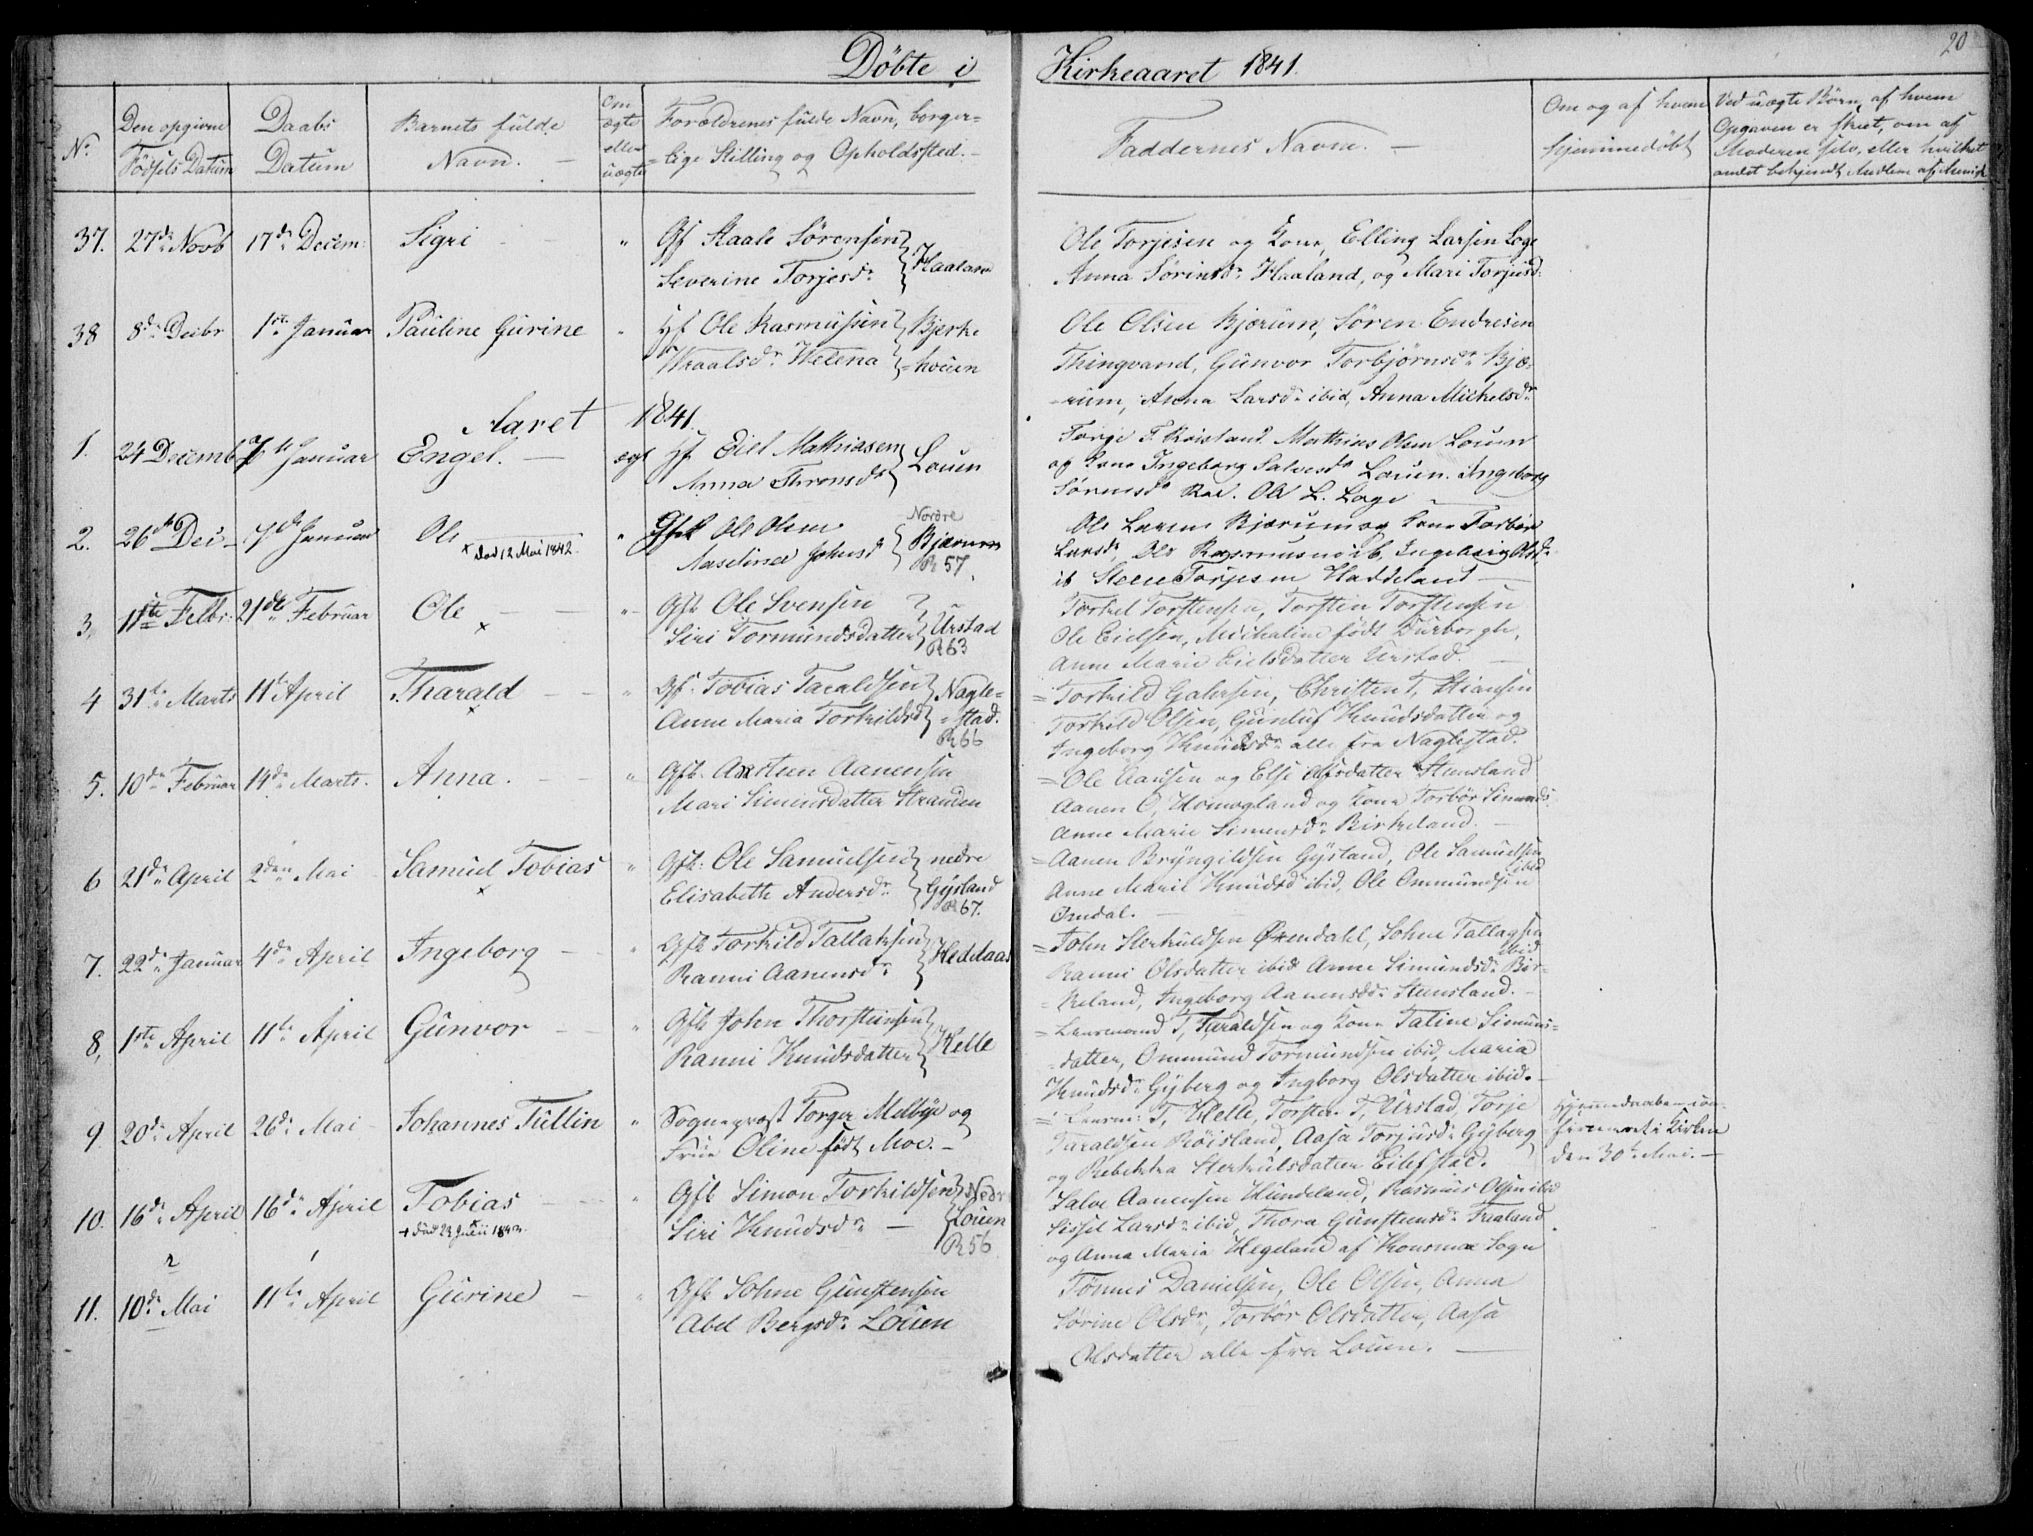 20
Döbte i Kirkeaaret 1841.
No
Den opgivne Födsels Datum
Daabs Datum
Barnets fulde Navn.
Om ægte eller uægte
Forældrenes fulde Navn, borger=
=lige Stilling og Opholdsted.
Faddernes Navn.
Om og af hvem hjemmedöbt
Ved uægte Börn, af hvem
Opgaven er skeet, om af
Moderen selv, eller hvilket
andet bekjendt Medlem af Menigh
37. 27de Novb 17de Decem: Sigri " Gf Staale Sörensen
Severine Torjesdr Haaland
Ole Torjesen og Kone, Elling Larsen Loge
Anna Sörensdr Haaland, og Mari Torjusd:
38 8de Decbr 1ste Januar Pauline Gurine " Hf Ole Rasmussen
Wraalsdr Helena Bjerke
=houen
Ole Olsen Bjærum, Sören Endresen
Thingvand, Gunvor Torbjørnsdr Bjæ=
=rum, Anna Larsdr ibid, Anna Michelsdr
Aaret 1841.
1. 24 Decemb 7de Januar Engel. ægt Hf Eiel Mathiasen
Anna Thronsdr Louen
Torje T. Röisland. Mathias Olsen Louen
og Kone Ingeborg Salvesdr Louen. Ingeborg
Sörensdr . Ole L. Loge
2. 26de Dec 7de Januar Ole " Gfst Ole Olsen
x död 12 Mai 1842.
Aaselina Johnsdr Nordre
Bjærum
R 57
Ole Larsen Bjærum og Kone Torbör
Larsdr Ole Rasmusen ib, Ingeborg Olsdr
ib Steen Torjesen Haddeland
3, 11te Febr: 21de Februar Ole x " Gfb Ole Svensen
Siri Tormundsdatter Urstad
R 63
Torkel Torstensen, Torsten Torstensen
Ole Eielsen, Michaline födt Durborgh,
Anne Marie Eielsdatter Urstad.
4 31te Marts 11te April Tharald x " Gf. Tobias Taraldsen
Anne Maria Torkildsd Nagle=
=stad.
R 66
=Torkild Galesen, Christen T,
Torkild Olsen, Gunluf Knudsdatter og
Ingeborg Knudsdr alle fra Naglestad.
5. 10de Februar 14de Marts. Anna. " Gfb. Aasteen Aanensen
Mari Simensdatter Stranden
=Ole Aansen og Else Olsdatter Stensland
Aanen O, Homogland og Kone Torbör Simonds
Anne Marie Simensdr Birkeland.
6 21de April 2den Mai Samuel Tobias x " Gfb. Ole Samuelsen
Elisabeth Andersdr nedre
Gysland
R 67.
=Aanen Bryngildsen Gysland, Ole Samuelsen
ibid
Anne Marie Knudsd ibid, Ole Ommundsen
Omdal.
7. 22de Januar 4de April Ingeborg " Gfb Torkild Tallaksen
Ranni Aanensdr Heddaas
=John Herkuldsen Öxendahl, Sohne Tallagsen
ibid
Ranni Olsdatter ibid Anne Simundsdr Bir=
=keland, Ingeborg Aanensdr Stensland.
8, 1ste April 11te April Gunvor " Gfb John Thorsteinsen
Ranni Knudsdatter Helle
=Lensmand T, Taraldsen og Kone Taline Simuns=
=datter, Ommund Tormundsen ibid, Maria
Knudsdr Gyberg og Ingborg Olsdatter ibid.
9. 20de April 26de Mai Johannes Tullin " Sognepræst Torger Melbye og
Frue Oline födt Moe.
=Lensm: T, Helle, Torsten T, Urstad, Torje
Taraldsen Röisland, Aasa Torjusdr Gyberg
og Rebekka Herkulsdatter Eilefstad.
Hjemmedaaben con=
firmeret i Kirken
den 30te Mai.
10. 16de April 16de April Tobias " Gfb Simon Torkildsen
+ död 23 Juni 1843.
Siri Knudsdr Nedr
Louen
R 56
Salve Aanensen Hundeland, Rasmus Olsen ibid
Sissel Larsdr ibid, Thora Gunstensdr Fraaland
og Anna Maria Hegeland af Konsmoe Sogn
11. 10de Mai 11te April Gurine " Gfb Sohne Gunstensen
Abel Bergsdr Louen
Tönnes Danielsen, Ole Olsen, Anna
Sörine Olsdr, Torbör Olsdatter, Aasa
Olsdatter alle fra Louen.